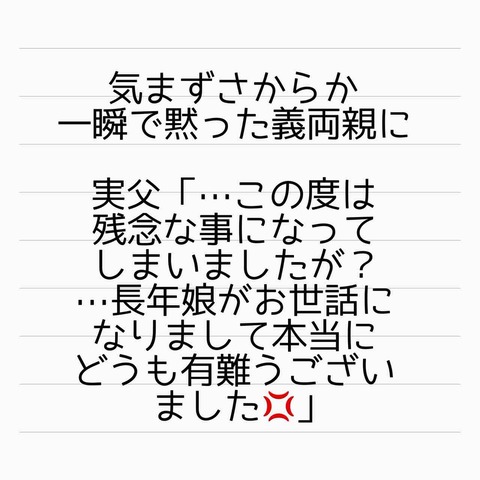 気まずさからか
一瞬で黙った義両親に
実父「…この度は
残念な事になって
しまいましたが？
…長年娘がお世話に
なりまして本当に
どうも有難うござい
ました💢」